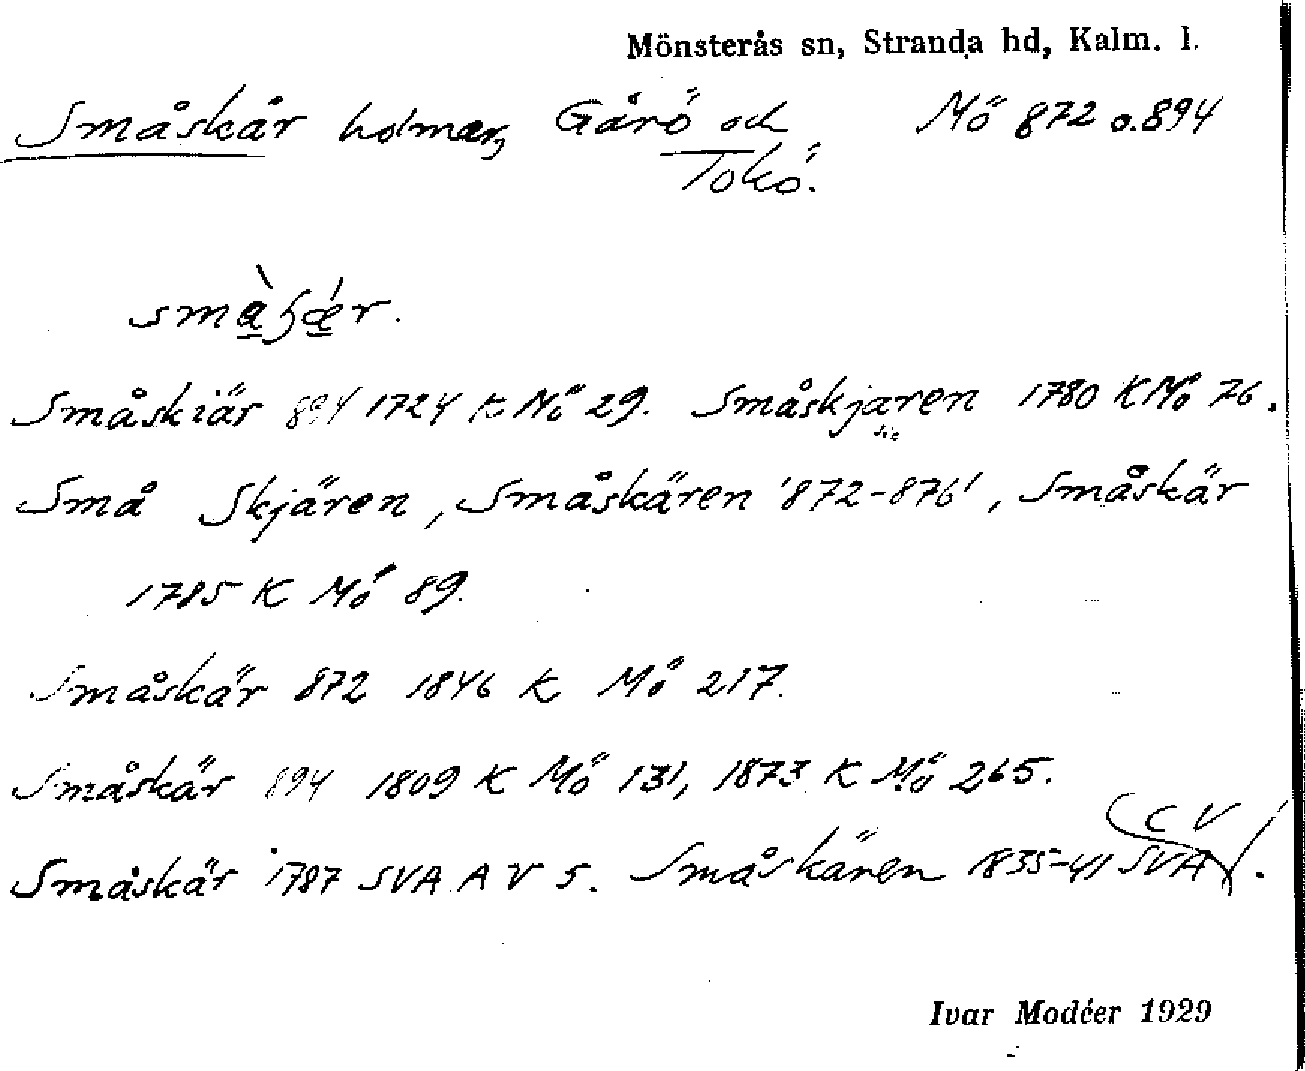 Mönsterås sn, Stranda hd, Kalm. l.
Småskär holmar, Gårö och Mö 872 o. 894
Tokö.
Småskiär 894 1724 K Mö 29. Småskjaren 1780 K Mö 76.
sic
Små Skjären, Småskären '872-876', Småskär
1785 K Mö 89.
Småskär 872 1846 K Mö 217.
Småskär 894 1809 K Mö 131, 1873 K Mö 265.
C V
Småskär 1787 SVA A V 5. Småskären 1835-41 SVA.
Ivar Modéer 1929